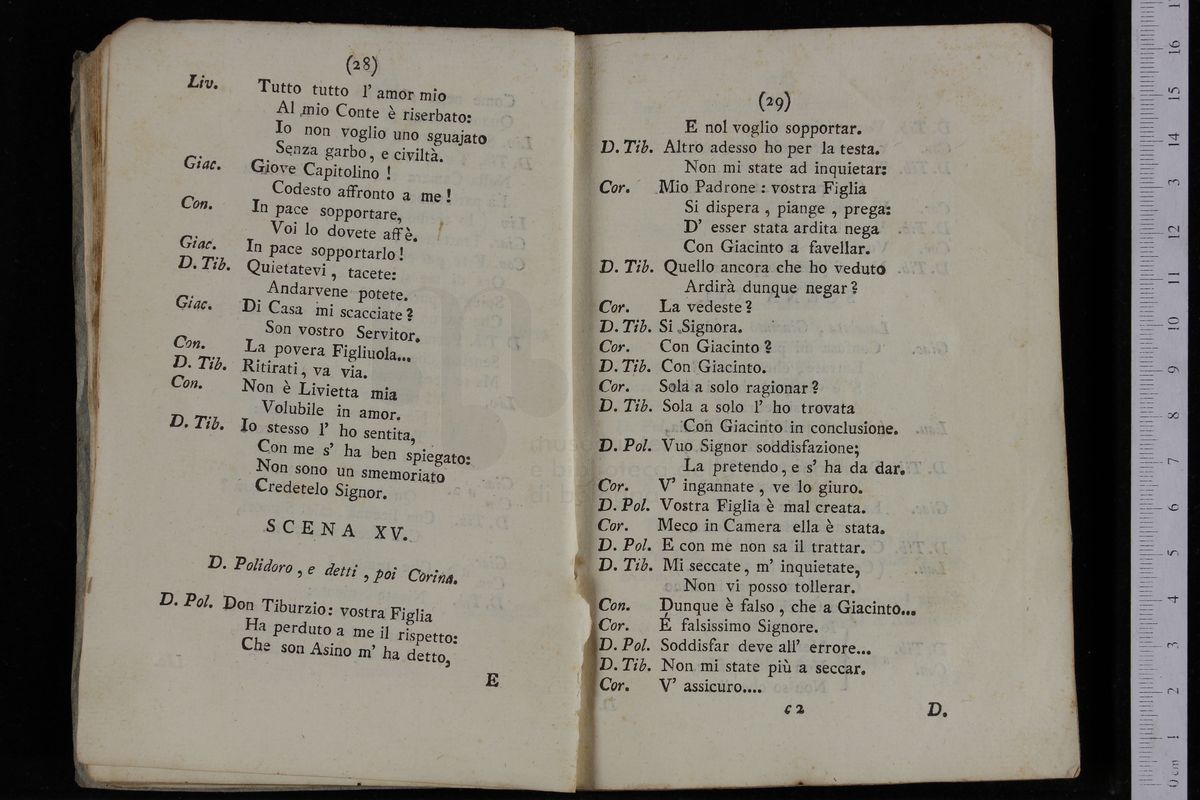 (28)
Liv. Tutto tutto l' amor mio
Al mio Conte è riserbato:
Io non voglio uno sguajato
Senza garbo, e civiltà.
Giac. Giove Capitolino !
Codesto affronto a me !
Con. In pace sopportare,
Voi lo dovete affè.
Giac. In pace sopportarlo !
D. Tib. Quietatevi, tacete:
Andarvene potete.
Giac. Di Casa mi scacciate ?
Son vostro Servitor.
Con. La povera Figliuola...
D. Tib. Ritirati, va via.
Con. Non è Livietta mia
Volubile in amor.
D. Tib. Io stesso l' ho sentita,
Con me s' ha ben spiegato:
Non sono un smemoriato
Credetelo Signor.
SCENA XV.
D. Polidoro, e detti, poi Corina.
D. Pol. Don Tiburzio: vostra Figlia
Ha perduto a me il rispetto:
Che son Asino m' ha detto,
E
(29)
E nol voglio sopportar.
D. Tib. Altro adesso ho per la testa.
Non mi state ad inquietar:
Cor. Mio Padrone : vostra Figlia
Si dispera , piange , prega:
D' esser stata ardita nega
Con Giacinto a favellar.
D. Tib. Quello ancora che ho veduto
Ardirà dunque negar ?
Cor. La vedeste ?
D. Tib. Si Signora.
Cor. Con Giacinto ?
D. Tib. Con Giacinto.
Cor. Sola a solo ragionar ?
D. Tib. Sola a solo l' ho trovata
Con Giacinto in conclusione.
D. Pol. Vuo Signor soddisfazione;
La pretendo, e s' ha da dar.
Cor. V' ingannate , ve lo giuro.
D. Pol. Vostra Figlia è mal creata.
Cor. Meco in Camera ella è stata.
D. Pol. E con me non sa il trattar.
D. Tib. Mi seccate, m' inquietate,
Non vi posso tollerar.
Con. Dunque è falso , che a Giacinto...
Cor. É falsissimo Signore.
D. Pol. Soddisfar deve all' errore...
D. Tib. Non mi state più a seccar.
Cor. V' assicuro....
c 2 D.
museo
e biblioteca
di bo
0 cm 1 2 3 4 5 6 7 8 9 10 11 12 13 14 15 16